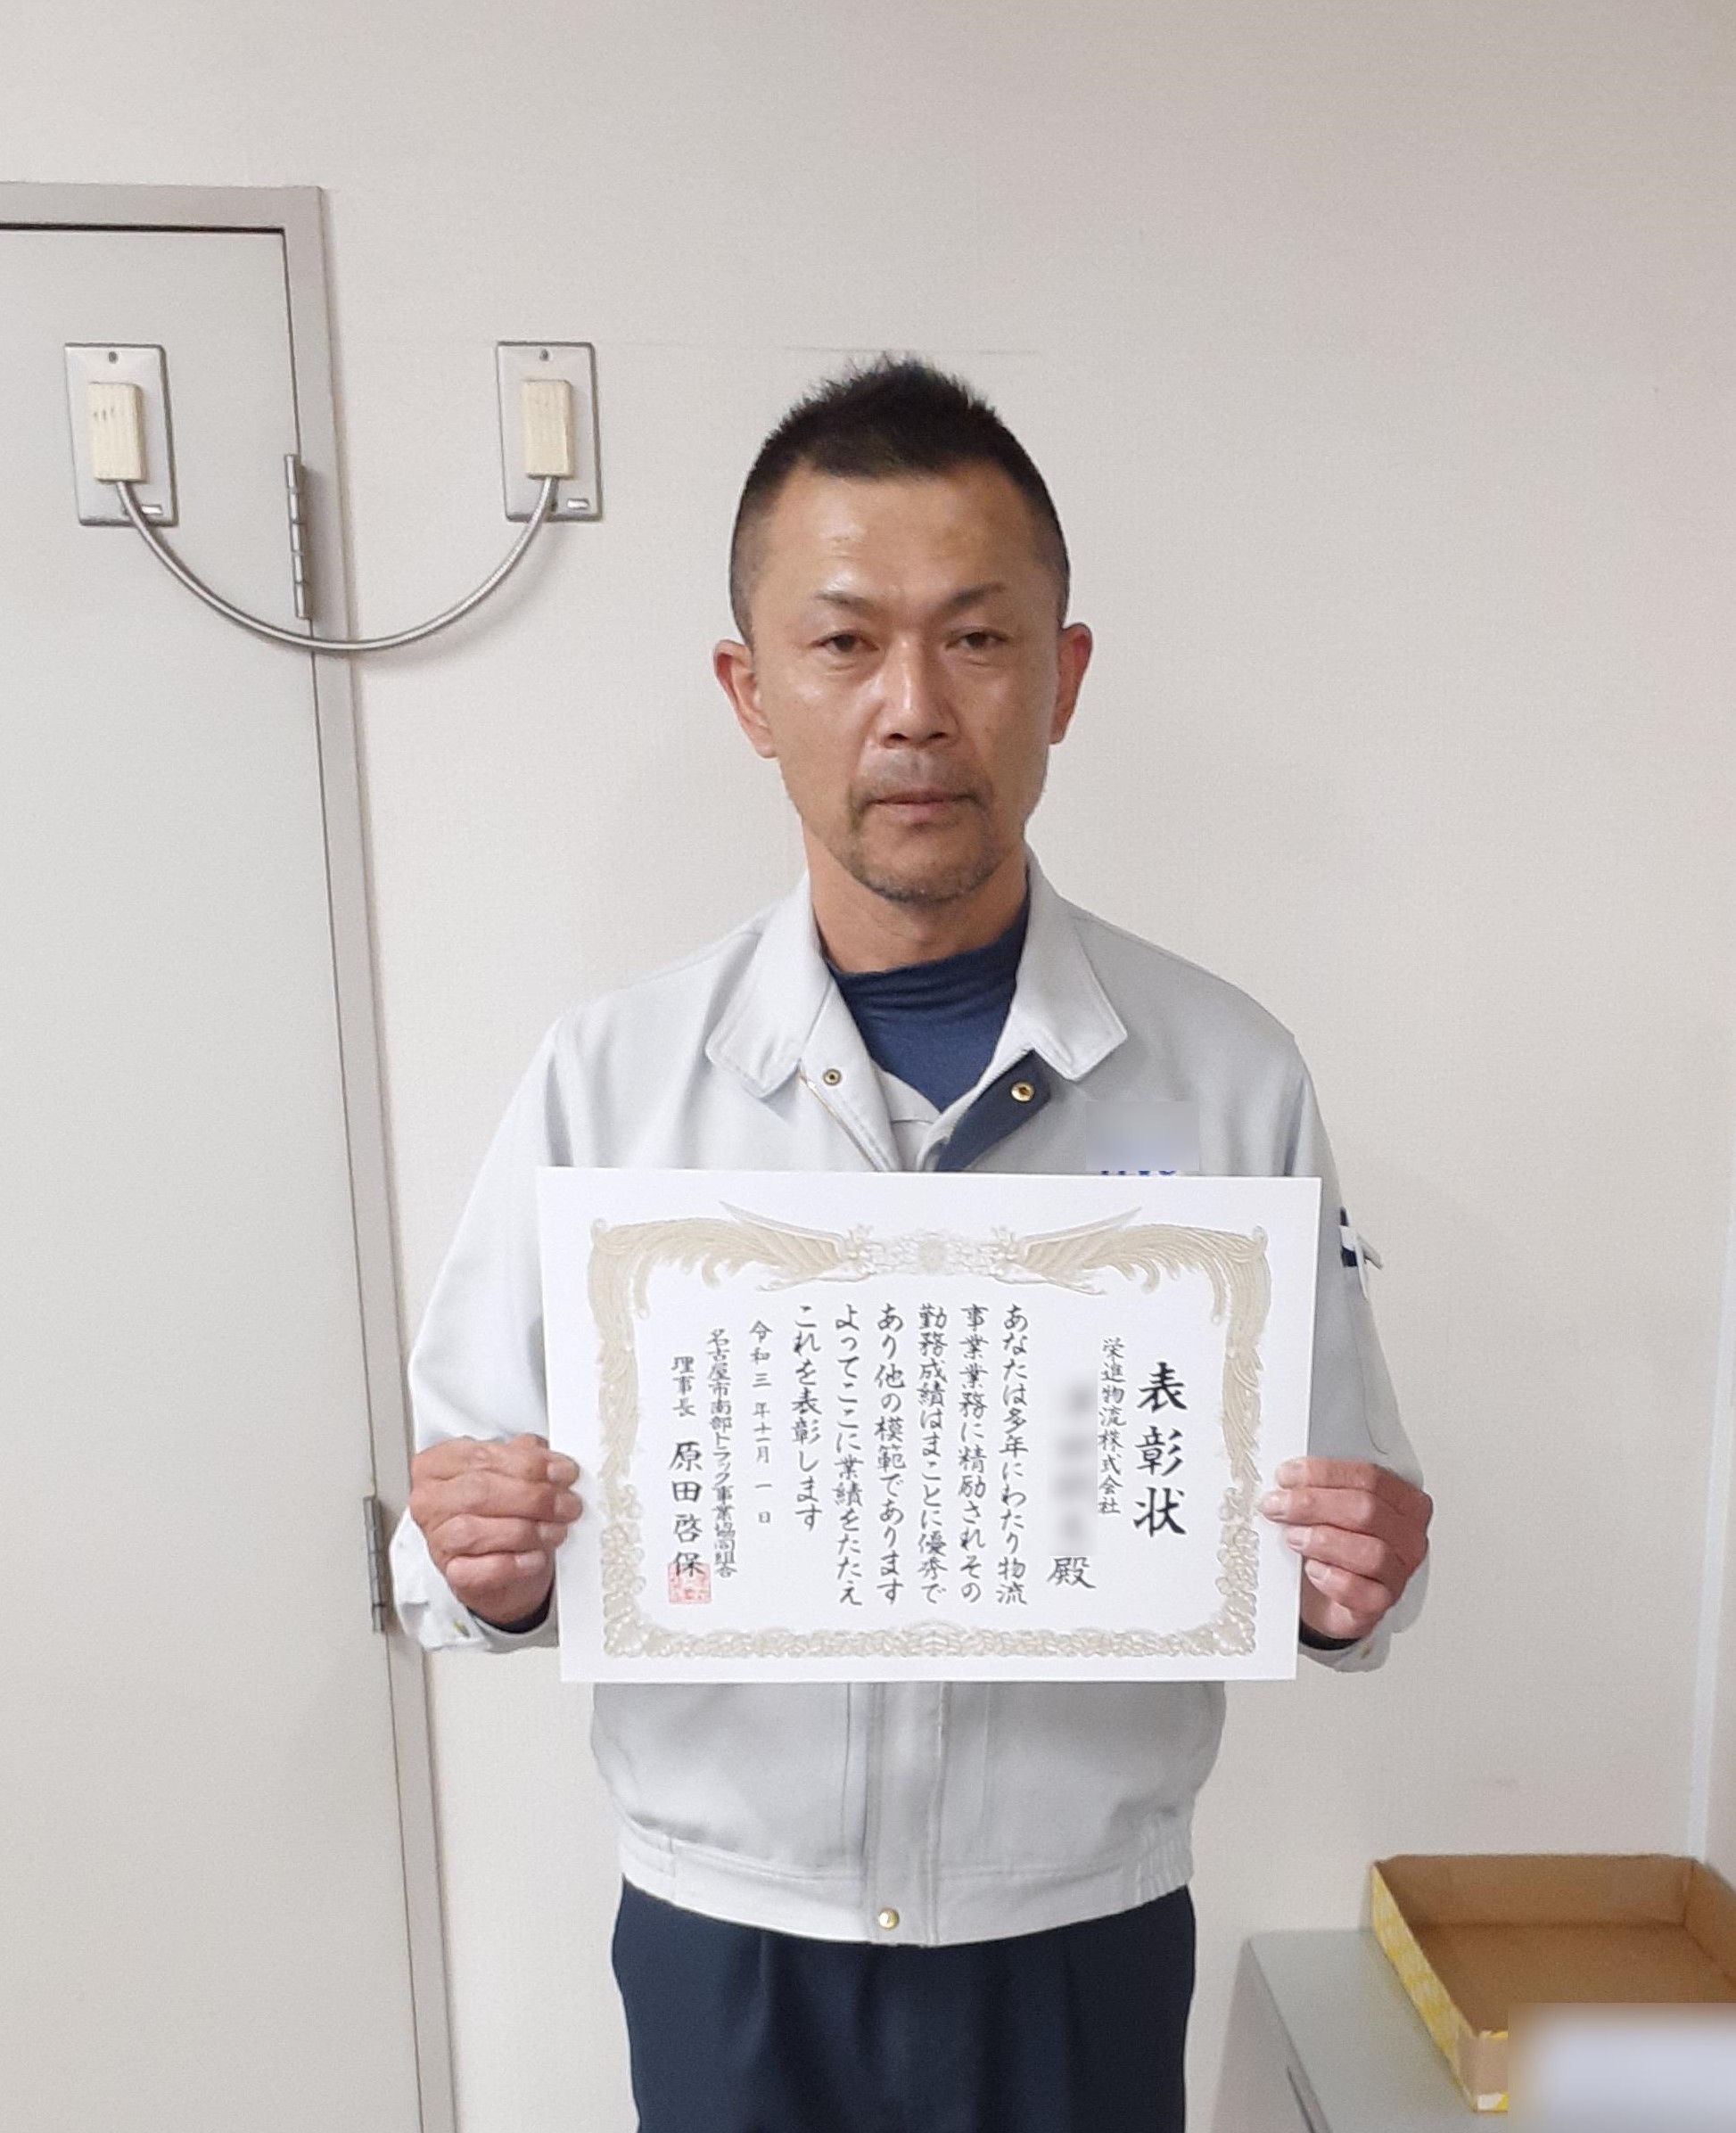 表彰状
栄進物流株式会社
殿
あなたは多年にわたり物流
事業業務に精励されその
勤務成績はまことに優秀で
あり他の模範であります
よってここに業績をたたえ
これを表彰します
令和三年十一月一日
名古屋市南部トラック事業協同組合
理事長 原田啓保